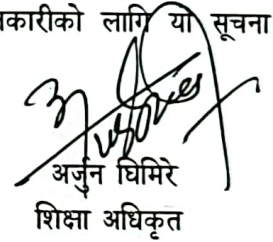 नकारीको लागि यो सूचना
अर्जुन घिमिरे
शिक्षा अधिकृत